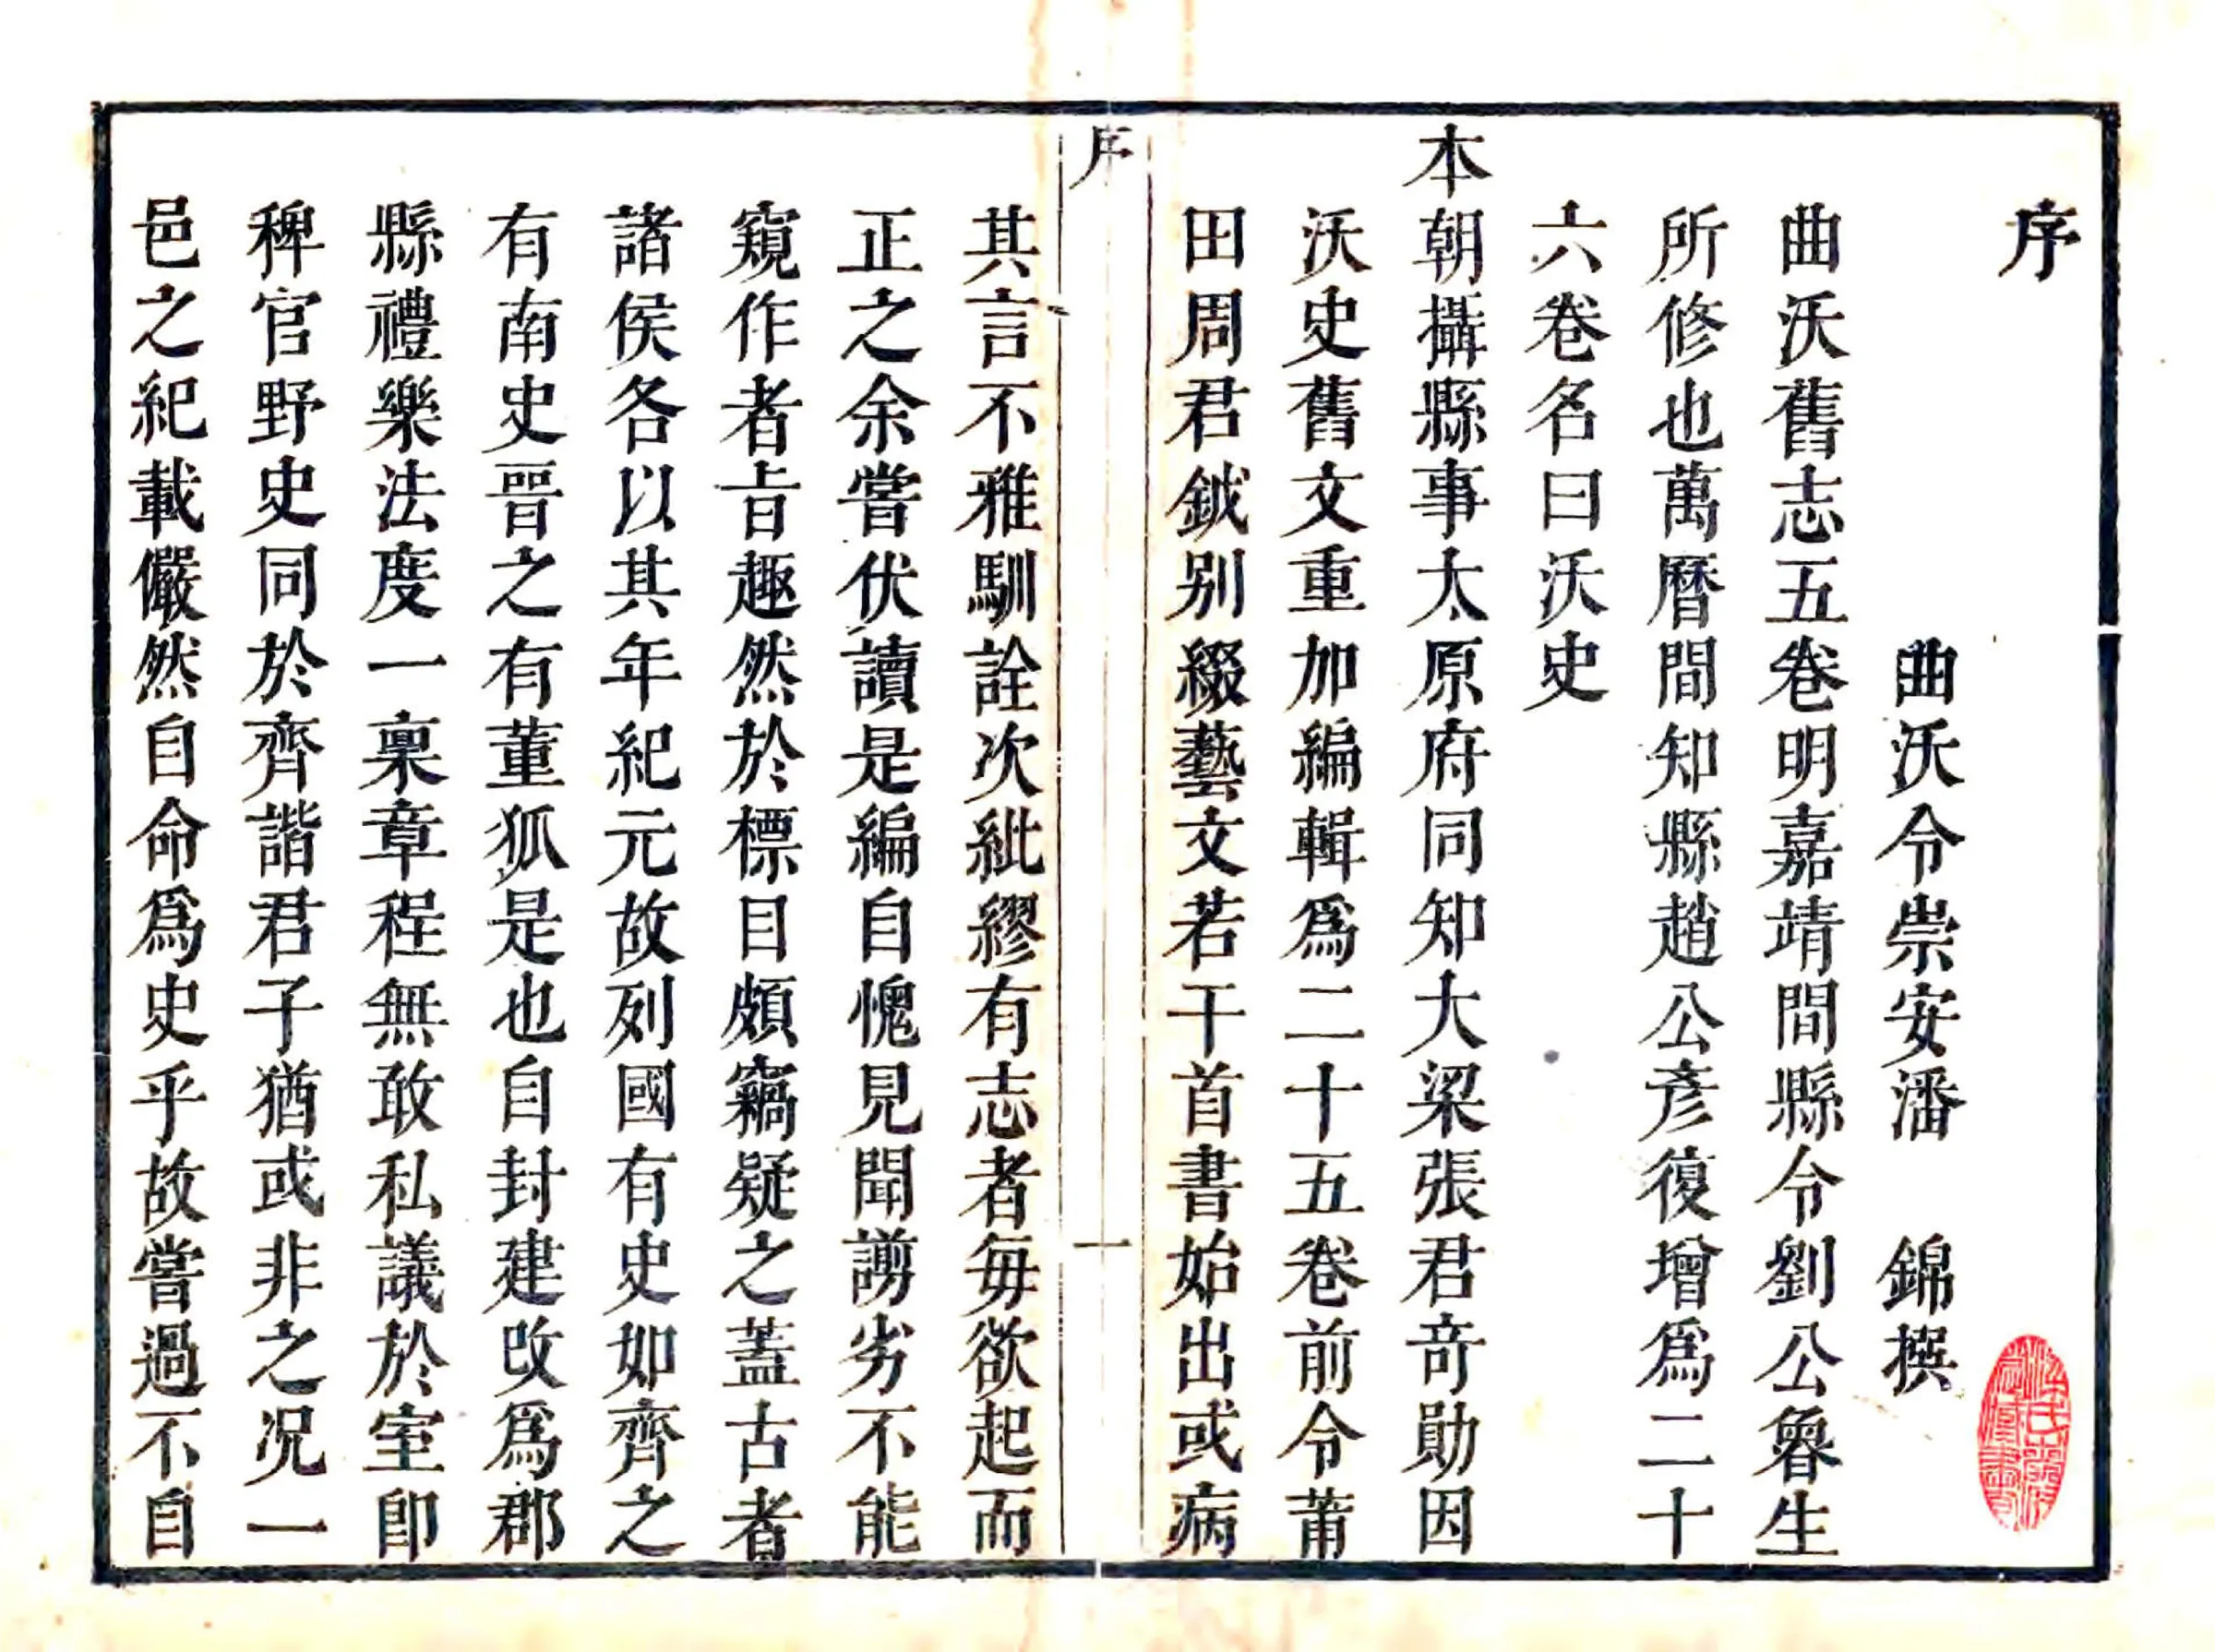 序
曲沃令崇安潘　錦撰
曲沃舊志五卷明嘉靖間縣令劉公魯生
所修也萬曆間知縣趙公彥復增爲二十
六卷名曰沃史
本朝攝縣事太原府同知大梁張君奇勛因
沃史舊文重加編輯爲二十五卷前令莆
田周君鉞别綴藝文若干首書始出或病
序
一
其言不雅馴詮次紕繆有志者每欲起而
正之余嘗伏讀是編自愧見聞謭劣不能
窺作者旨趣然於標目頗竊疑之蓋古者
諸侯各以其年紀元故列國有史如齊之
有南史晉之有董狐是也自封建改爲郡
縣禮樂法度一稟章程無敢私議於室卽
稗官野史同於齊諧君子猶或非之况一
邑之紀載儼然自命爲史乎故嘗過不自